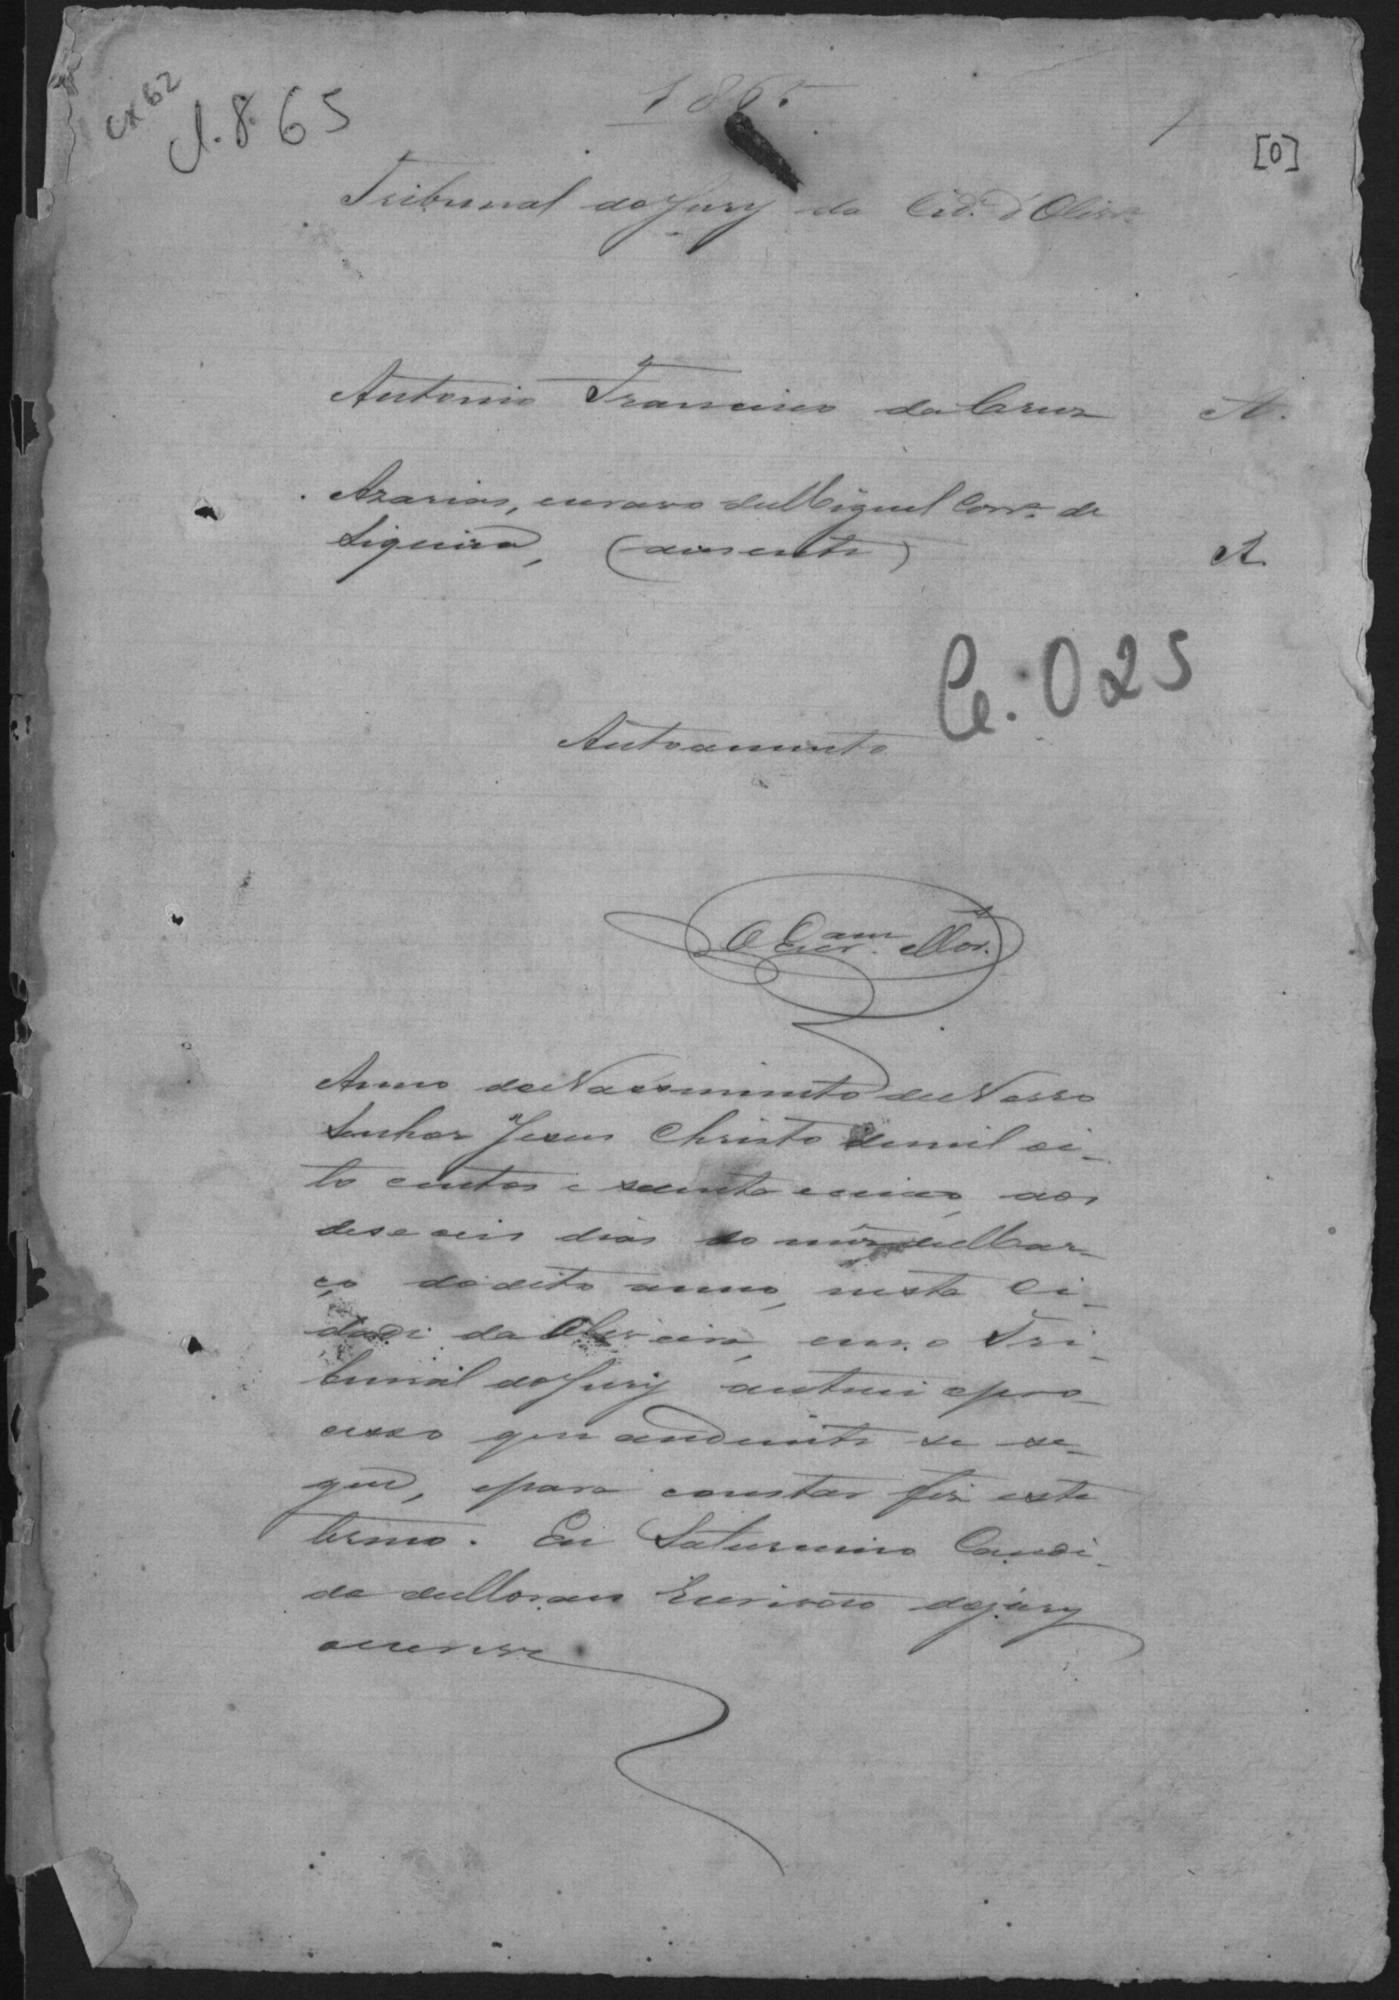 cx 62
1.8.65
1865
1
[0]
Tribunal do Jury da Cid.e d'Olivr.a
Antonio Francisco da Cruz A.
Azarias, escravo de Miguel Corr.a de
Siqueira, (auzente) R.
Ce. 025
Autoamento
O Escr.am Mor.
Anno do Nascimento de Nosso
Senhor Jesus Christo de mil oi-
to centos e secenta e cinco, aos
deseceis dias do mez de Mar-
ço do dito anno, nesta Ci-
dade da Oliveira, em o Tri-
bunal do Jury autuei o pro-
cesso que andiente se se-
gue, e para constar fiz este
termo. Eu Saturnino Candi-
do de Moraes Escrivão do jury
o escrevi